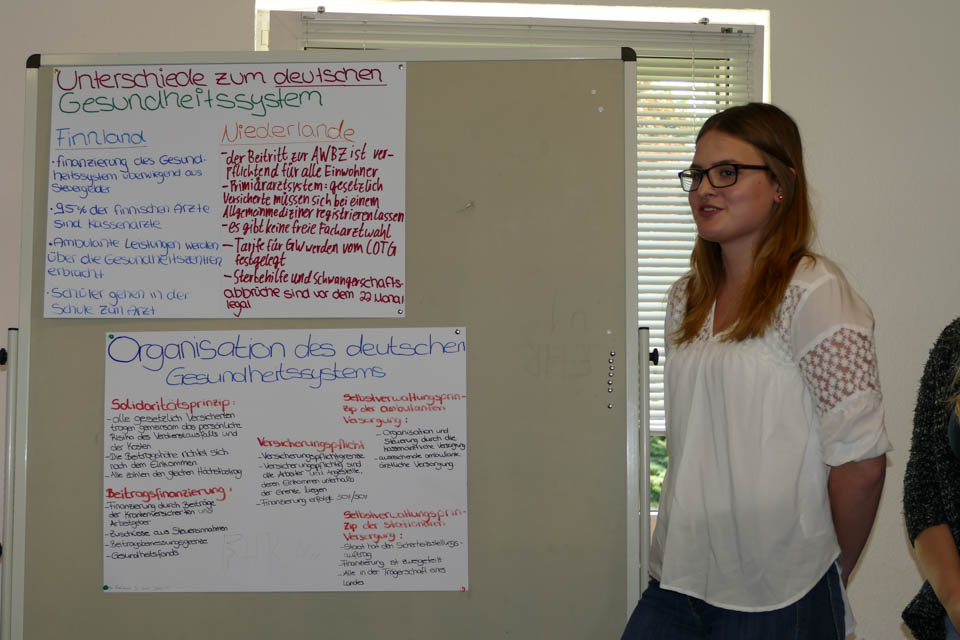 Unterschiede zum deutschen
Gesundheitssystem
Finnland
· finanzierung des Gesund-
heitssystem überwiegend aus
Steuergelder
· 95% der finnischen Ärzte
sind Kassenärzte
· Ambulante Leistungen werden
über die Gesundheitszentren
erbracht
· Schüler gehen in der
Schule zum Arzt
Niederlande
- der Beitritt zur AWBZ ist ver-
pflichtend für alle Einwohner
- Primärarztsystem: gesetzlich
Versicherte müssen sich bei einem
Allgemeinmediziner registrieren lassen
- es gibt keine freie Facharztwahl
- Tarife für GW werden vom COTG
festgelegt
- Sterbehilfe und Schwangerschafts-
abbrüche sind vor dem 22 Monat
legal
Organisation des deutschen
Gesundheitssystems
Solidaritätsprinzip:
- alle gesetzlich Versicherten
tragen gemeinsam das persönliche
Risiko des Verdienstausfalls und
der Kosten
- Die Beitragshöhe richtet sich
nach dem Einkommen
- Alle zahlen den gleichen Höchstbeitrag
Beitragsfinanzierung:
- Finanzierung durch Beiträge
der Krankenversicherten und
Arbeitgeber
- Zuschüsse aus Steuereinnahmen
- Beitragsbemessungsgrenze
- Gesundheitsfonds
Versicherungspflicht
- Versicherungspflichtgrenze
- Versicherungspflichtig sind
die Arbeiter und Angestellte,
deren Einkommen unterhalb
der Grenze liegen
- Finanzierung erfolgt 50%/50%
Selbstverwaltungsprin-
zip der ambulanten
Versorgung:
- Organisation und
Steuerung durch die
kassenärztliche Vereinigung
- ausreichende ambulante
ärztliche Versorgung
Selbstverwaltungsprin-
zip der stationären
Versorgung:
- Staat hat den Sicherstellungs-
auftrag
- Finanzierung ist zweigeteilt
- Alle in der Trägerschaft eines
Landes